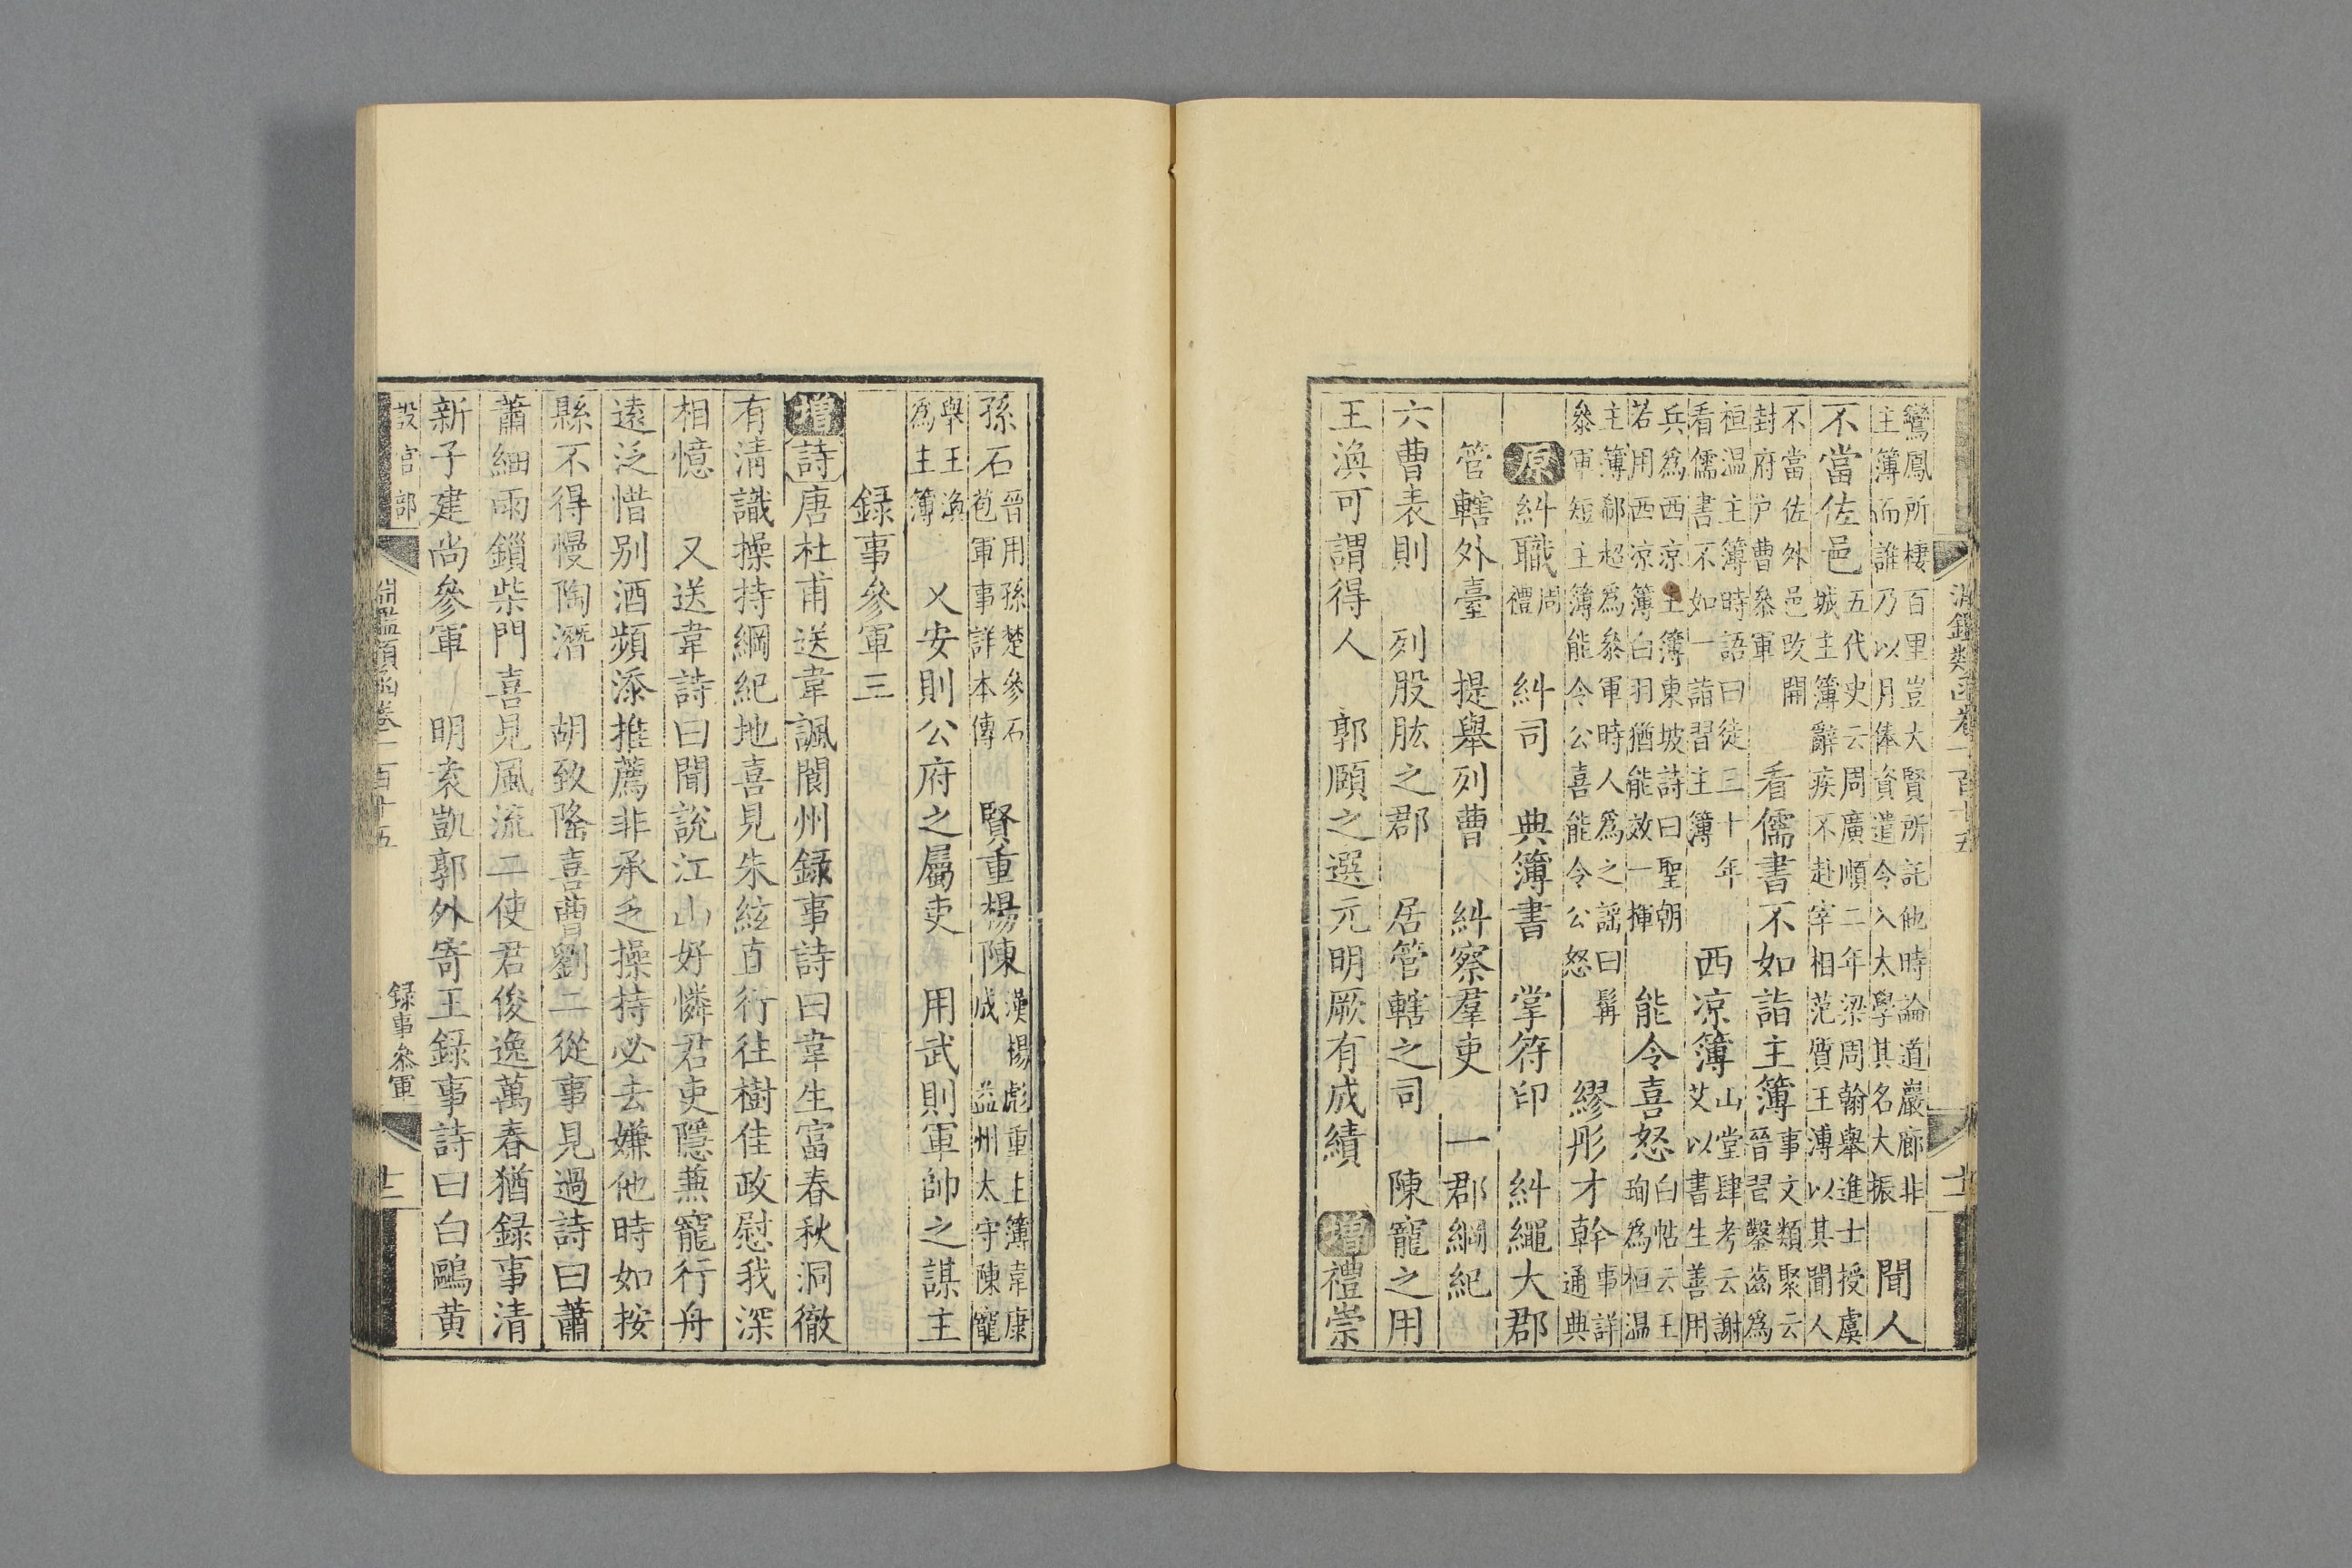 淵鑑類函卷一百十五 十一
鸞鳳所棲百里豈大賢所託他時論道巖廊非
主簿而誰乃以月俸資遣令入太學其名大振 聞人
不當佐邑 五代史云周廣順二年梁周翰舉進士授虞
城主簿辭疾不赴宰相范質王溥以其聞人
不當佐外邑改開
封府户曹叅軍 看儒書不如詣主簿 事文類聚云
晉習鑿齒爲
桓温主簿時語曰徒三十年
看儒書不如一詣習主簿 西凉簿 山堂肆考云謝
艾以書生善用
兵爲西凉主簿東坡詩曰聖朝
若用西凉簿白羽猶能效一揮 能令喜怒 白帖云王
珣爲桓温
主簿郗超爲叅軍時人爲之謡曰髯
叅軍短主簿能令公喜能令公怒 繆彤才幹 事詳
通典
原 糾職 周
禮 糾司 典簿書 掌符印 糾繩大郡
管轄外臺 提舉列曹 糾察羣吏 一郡綱紀
六曹表則 列股肱之郡 居管轄之司 陳寵之用
王渙可謂得人 郭頤之選元明厥有成績 增 禮崇
孫石 晉用孫楚參石
苞軍事詳本傳 賢重楊陳 漢楊彪重主簿韋康
成 益州太守陳寵
舉王渙
爲主簿 乂安則公府之屬吏 用武則軍帥之謀主
録事參軍三
增 詩 唐杜甫送韋諷閬州録事詩曰韋生富春秋洞徹
有清識操持綱紀地喜見朱絃直行往樹佳政慰我深
相憶 又送韋詩曰聞說江山好憐君吏隱蒹寵行舟
遠泛惜别酒頻添推薦非承乏操持必去嫌他時如按
縣不得慢陶潛 胡致隆喜曹劉二從事見過詩曰蕭
蕭細雨鎖柴門喜見風流二使君俊逸萬春猶録事清
新子建尚參軍 明袁凱郭外寄王録事詩曰白鷗黄
設官部 淵鑑類函卷一百十五 録事叅軍